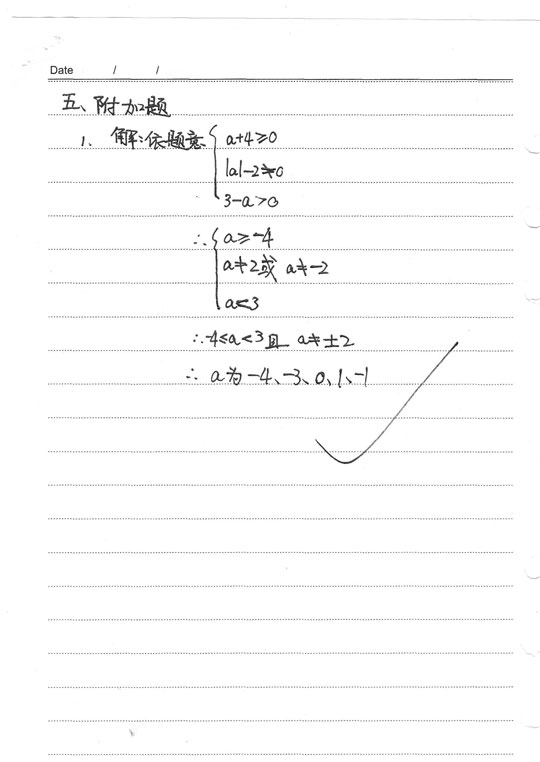 Date / /
五、附加题
1、解:依题意 { a+4≥0
|a|-2≠0
3-a>0
∴ { a≥-4
a≠2或 a≠-2
a<3
∴-4≤a<3且 a≠±2
∴ a为-4、-3、0、1、-1